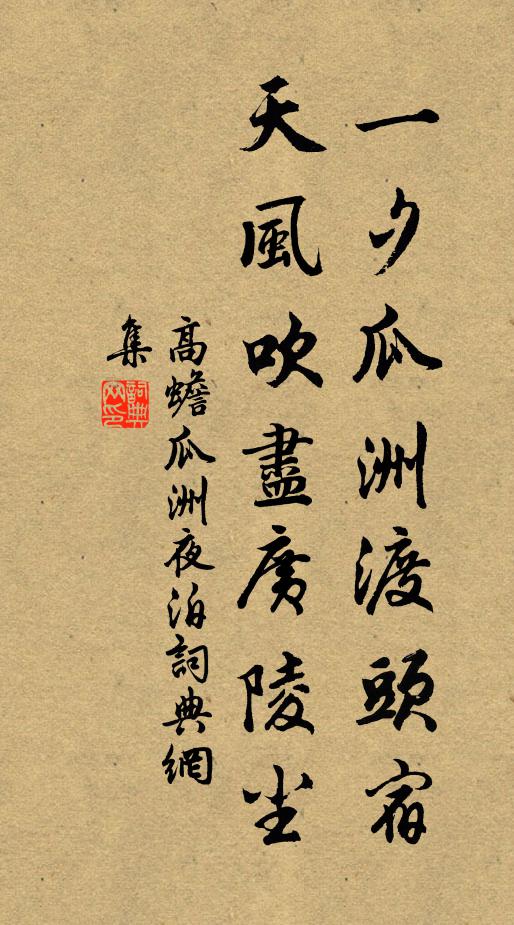 一夕瓜洲渡頭宿
天風吹盡廣陵尘
高蟾瓜洲夜泊詞典網
集
詞典网印